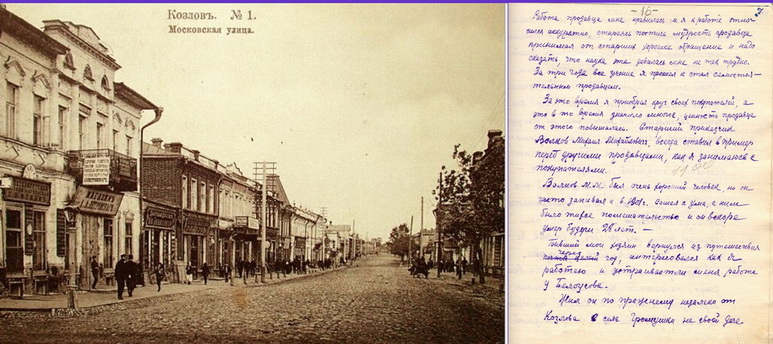 Козловъ. № 1.
Московская улица.
- 16 -
Работа продавца мне нравилась и я к работе относился
аккуратно, старался постичь мудрость продавца
принимал от старших хорошее обращение и надо
сказать, что наука эта давалась мне не так трудно.
За три года все учение я прошел и стал самостоя-
тельным продавцом.
За это время я приобрел круг своих покупателей, а
это в то время значило многое, ценность продавца
от этого повышалась. Старший приказчик
Волков Михаил Михайлович, всегда ставил в пример
перед другими продавцами, как я занимаюсь с
покупателями.
Волков М.М. был очень хороший человек, но он
часто запивал и в 190 г. сошел с ума, с ним
было тихое помешательство и он вскоре
умер будучи 28 лет. —
Бывший мой хозяин вернулся из путешествия
через год, интересовался как я
работаю и устраивает ли меня работа
у Белоусова.
Жил он по прежнему недалеко от
Козлова в селе на своей даче